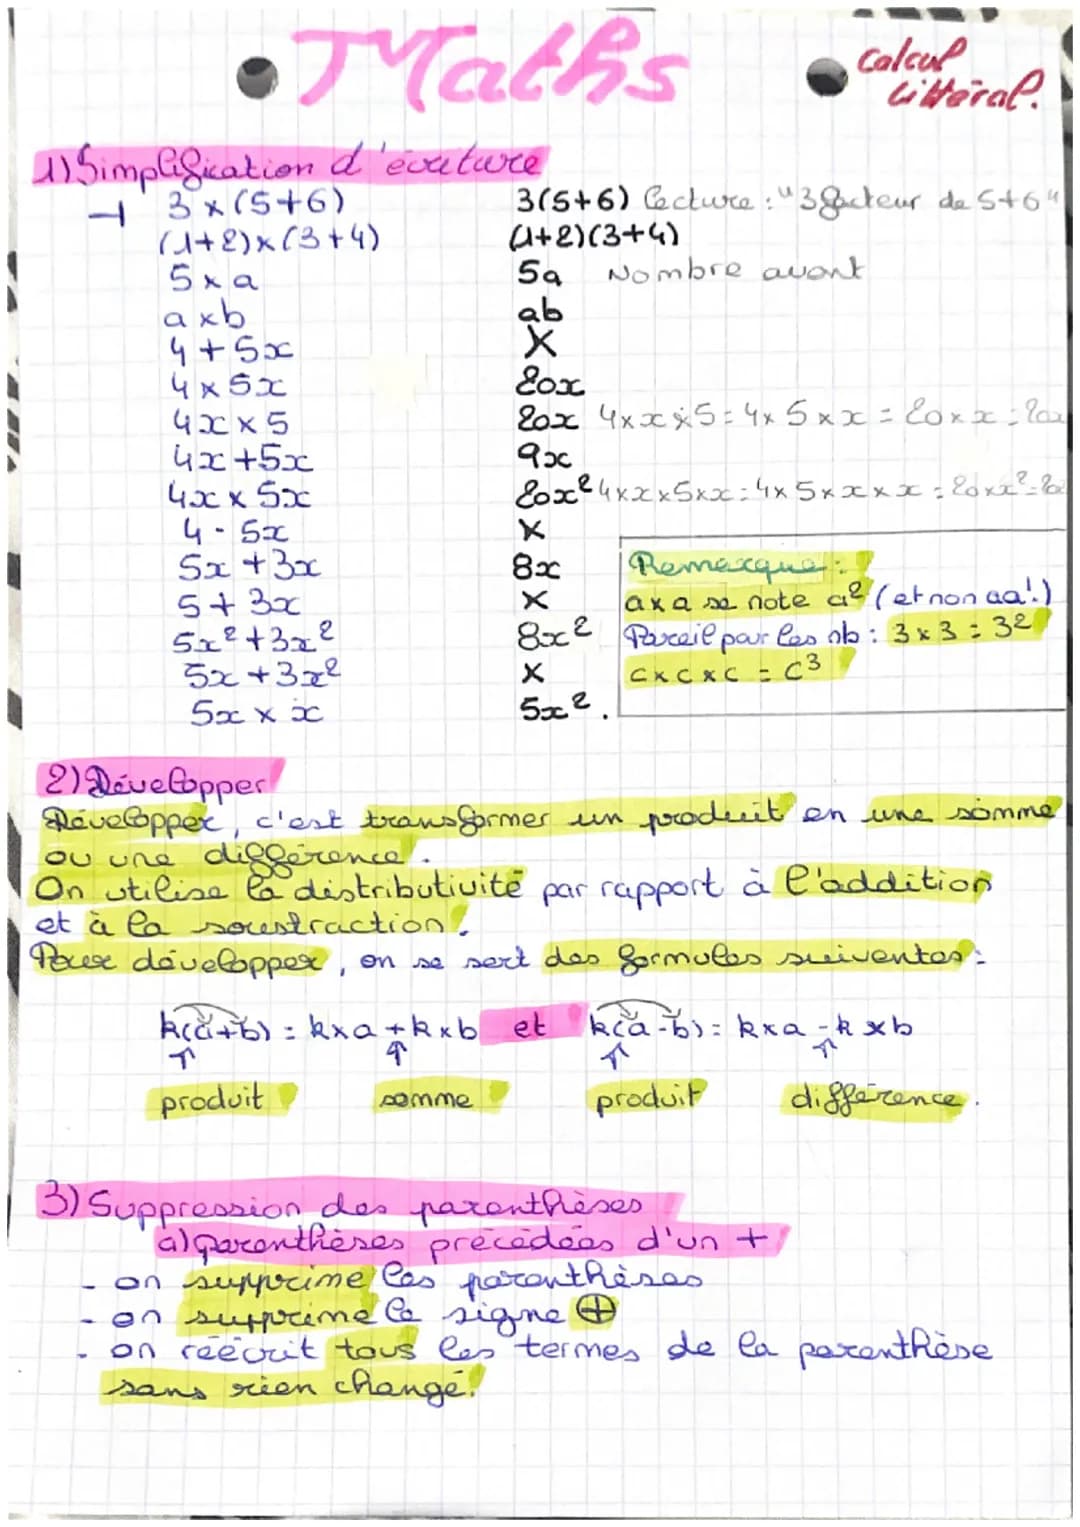 Maths
Calcul
Littéral.
1) Simplification d'écriture
3 × (5+6) 3(5+6) Lecture : "3 facteur de 5+6"
(1+2)×(3+4) (1+2)(3+4)
5 × a 5a Nombre avant
a × b ab
4 + 5x X
4 × 5x 20x
4x × 5 20x 4×x×5 = 4×5×x = 20×x = 20x
4x + 5x 9x
4x × 5x 20x² 4×x×5×x = 4×5×x×x = 20×x² = 20
4 - 5x X
5x + 3x 8x
5 + 3x X
5x² + 3x² 8x²
5x + 3x² X
5x × x 5x².
Remarque :
a×a se note a² (et non aa!)
Pareil pour les nb : 3×3 = 3²
c×c×c = c³
2) Développer
Développer, c'est transformer un produit en une somme
ou une différence.
On utilise la distributivité par rapport à l'addition
et à la soustraction.
Pour développer, on se sert des formules suiventes :
k(a+b) = k×a + k×b et k(a-b) = k×a - k×b
produit somme produit différence.
3) Suppression des parenthèses
a) parenthèses précédées d'un +
- on supprime les parenthèses
- on supprime le signe ⊕
- on réécrit tous les termes de la parenthèse
sans rien changé.